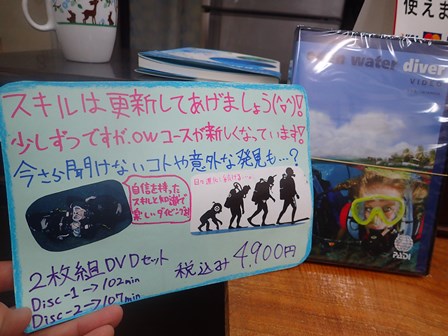 スキルは更新してあげましょう(^^)!
少しずつですが、OWコースが新しくなっています!
今さら聞けないコトや意外な発見も…?
自信を持った
スキルと知識で
楽しいダイビングを!
2枚組DVDセット
Disc-1→102min
Disc-2→107min
税込み 4,900円
water diver
VIDEO
PADI
使えま